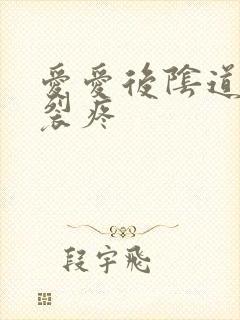 愛愛後陰道
裂疼
段宇飛